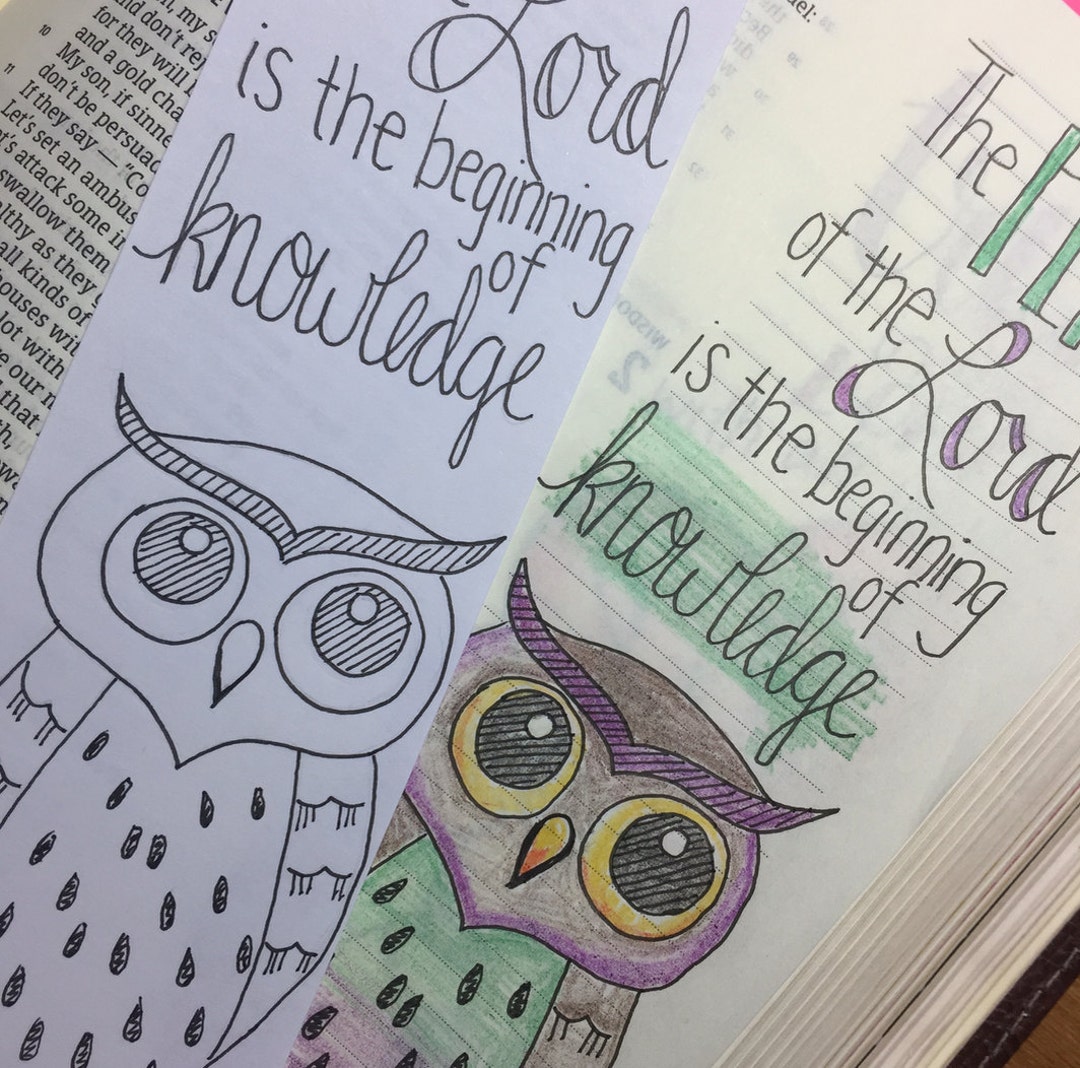 my s
and don't rej
for they will
and a gold cha
10 My son, if sinne
don't be persuad
11 If they say— “Co
Let's set an ambus
t's attack some
swallow them
lthy as they
all kinds of
houses wi
lot with
e our
that
Lord
is the beginning
of
knowledge
uel:
The
of the
Lord
is the beginning
of
knowledge